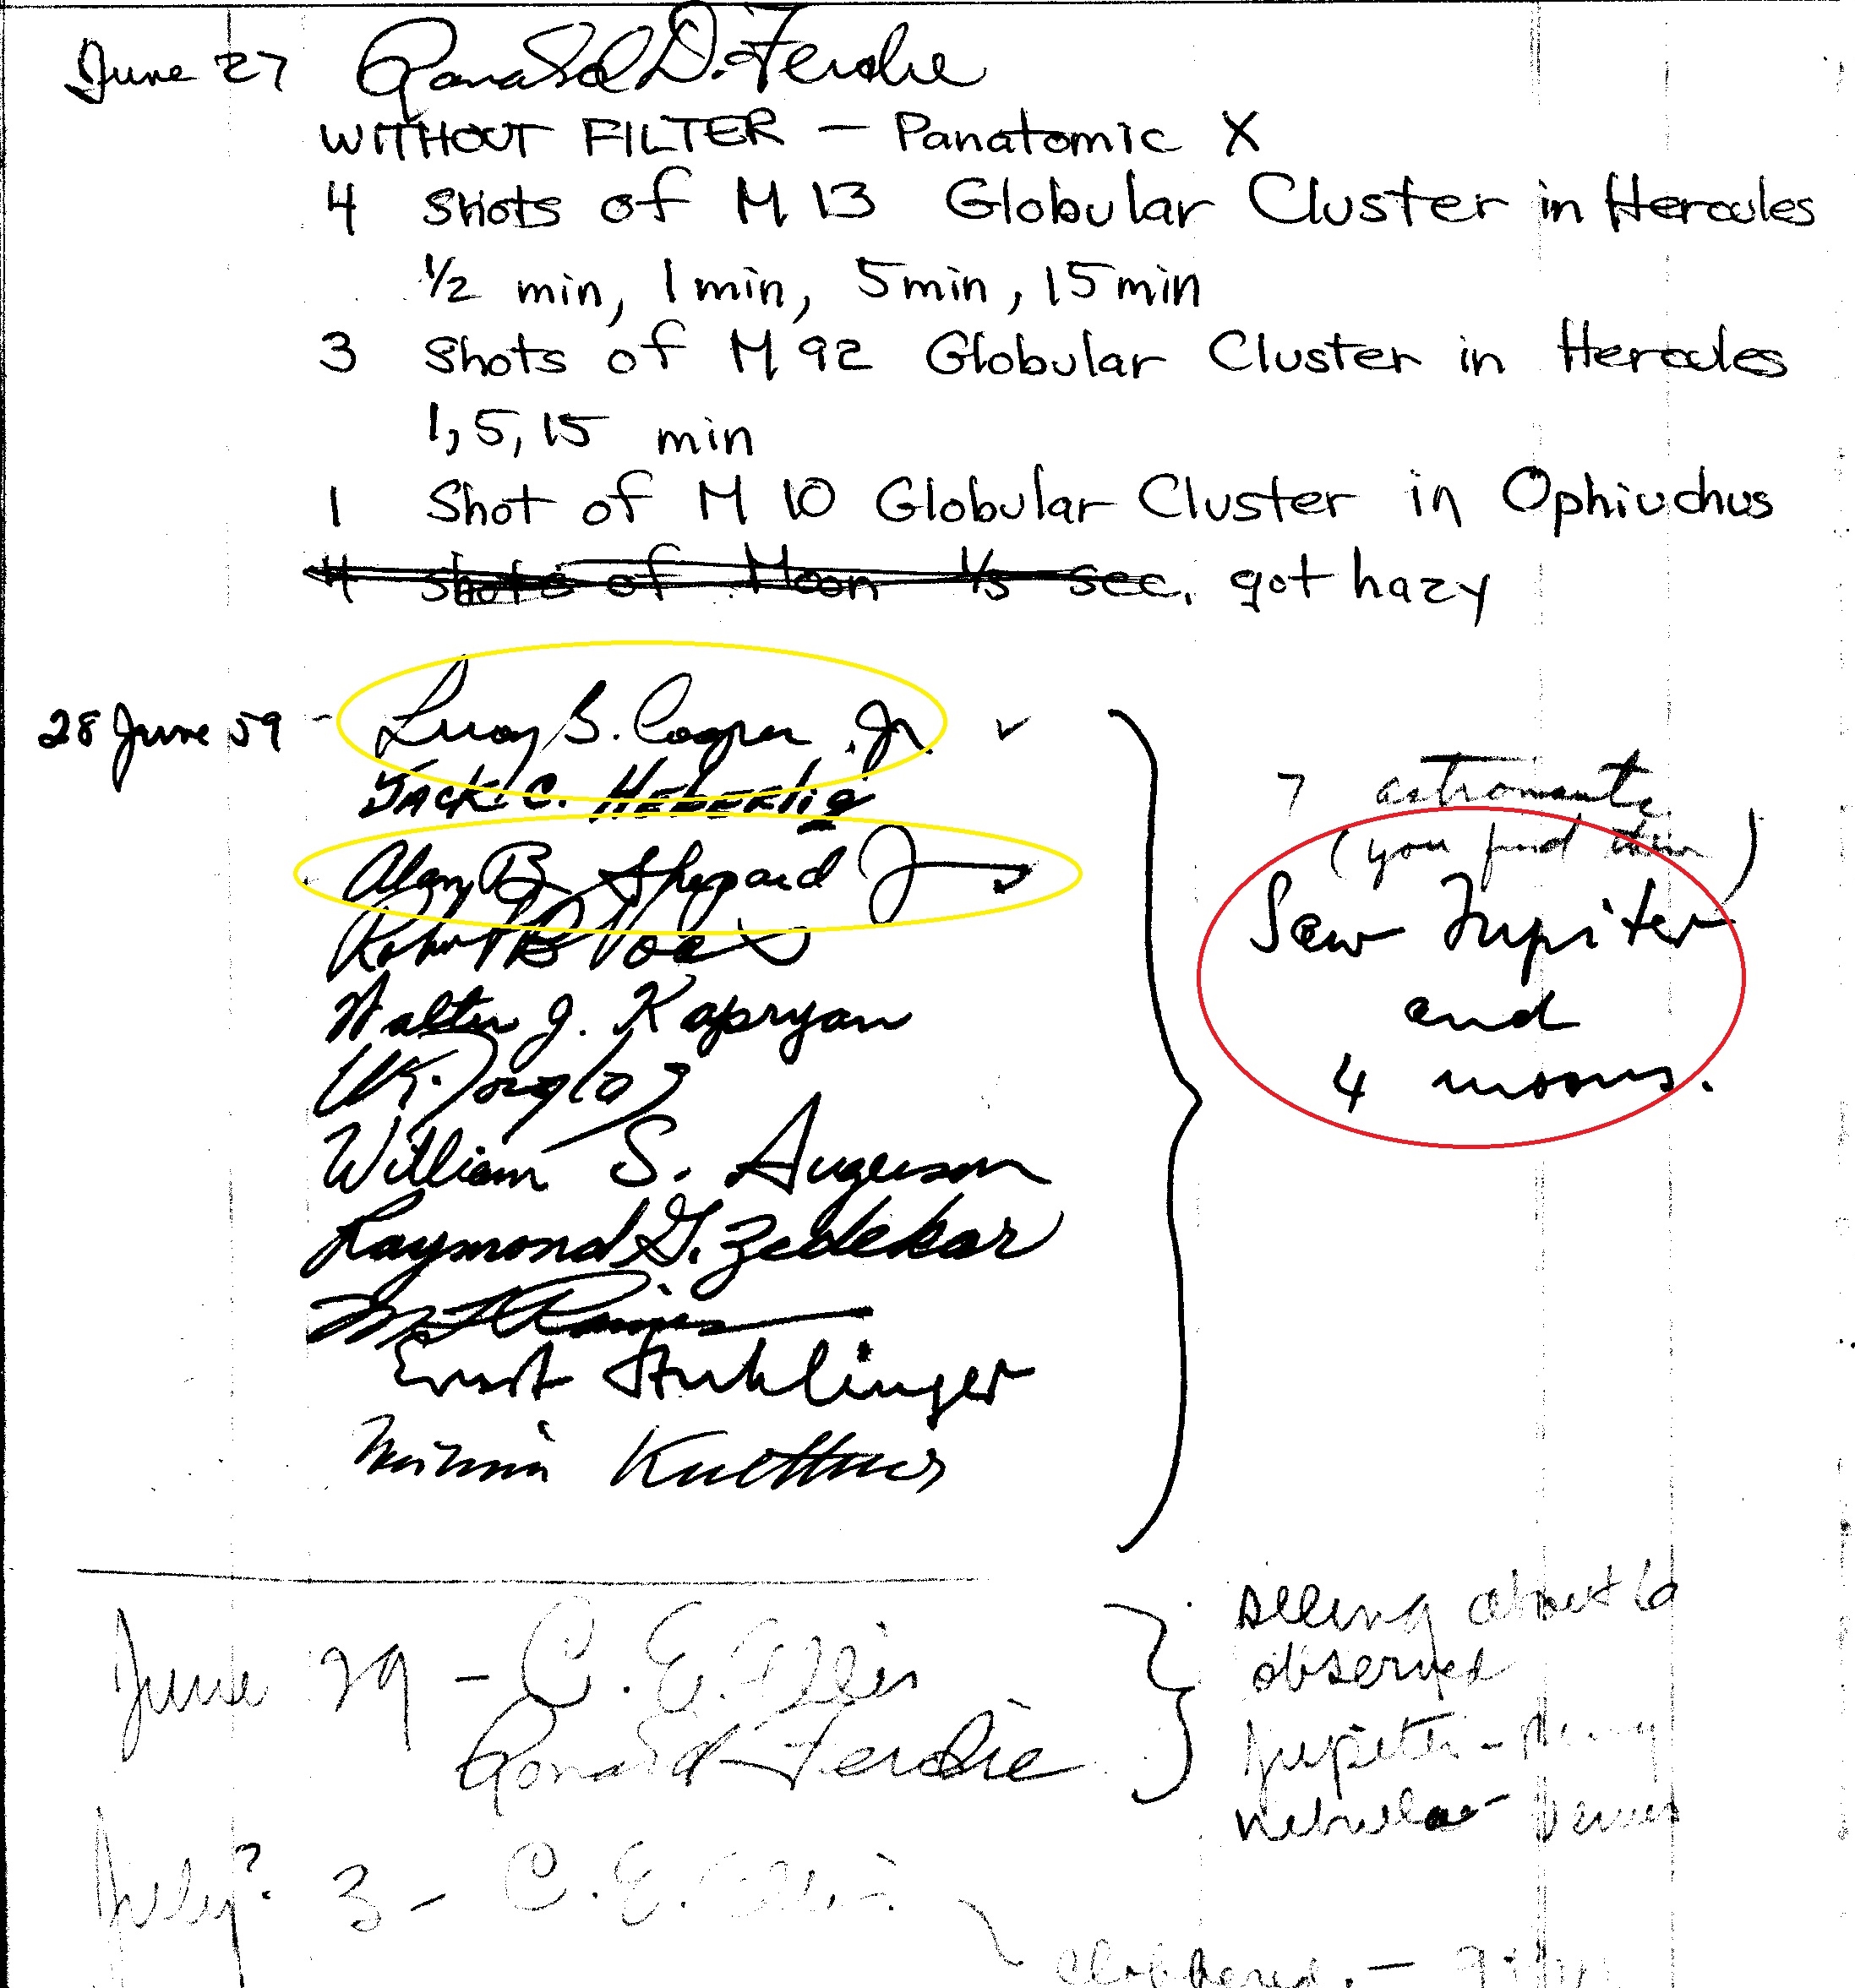 June 27 Ronald D. Ferdie
WITHOUT FILTER – Panatomic X
4 Shots of M 13 Globular Cluster in Hercules
1/2 min, 1 min, 5 min, 15 min
3 Shots of M 92 Globular Cluster in Hercules
1, 5, 15 min
1 Shot of M 10 Globular Cluster in Ophiuchus
4 shots of Moon 1/5 sec, got hazy
28 June 59 - Leroy G. Cooper, Jr. ✓
Jack C. Heberlig
Alan B. Shepard Jr
Robert B Voas
Walter J. Kapryan
WK. Douglas
William S. Augerson
Raymond G. Zedekar
Ernst Stuhlinger
Kuettner
7 astronauts
(you find them)
Saw Jupiter
and
4 moons.
June 29 - C. E. Ellis
Ronald Ferdie
seeing about 6
observed
Jupiter - Ring
nebulae - Venus
July? 3 - C. E. Ellis
clobbered. –